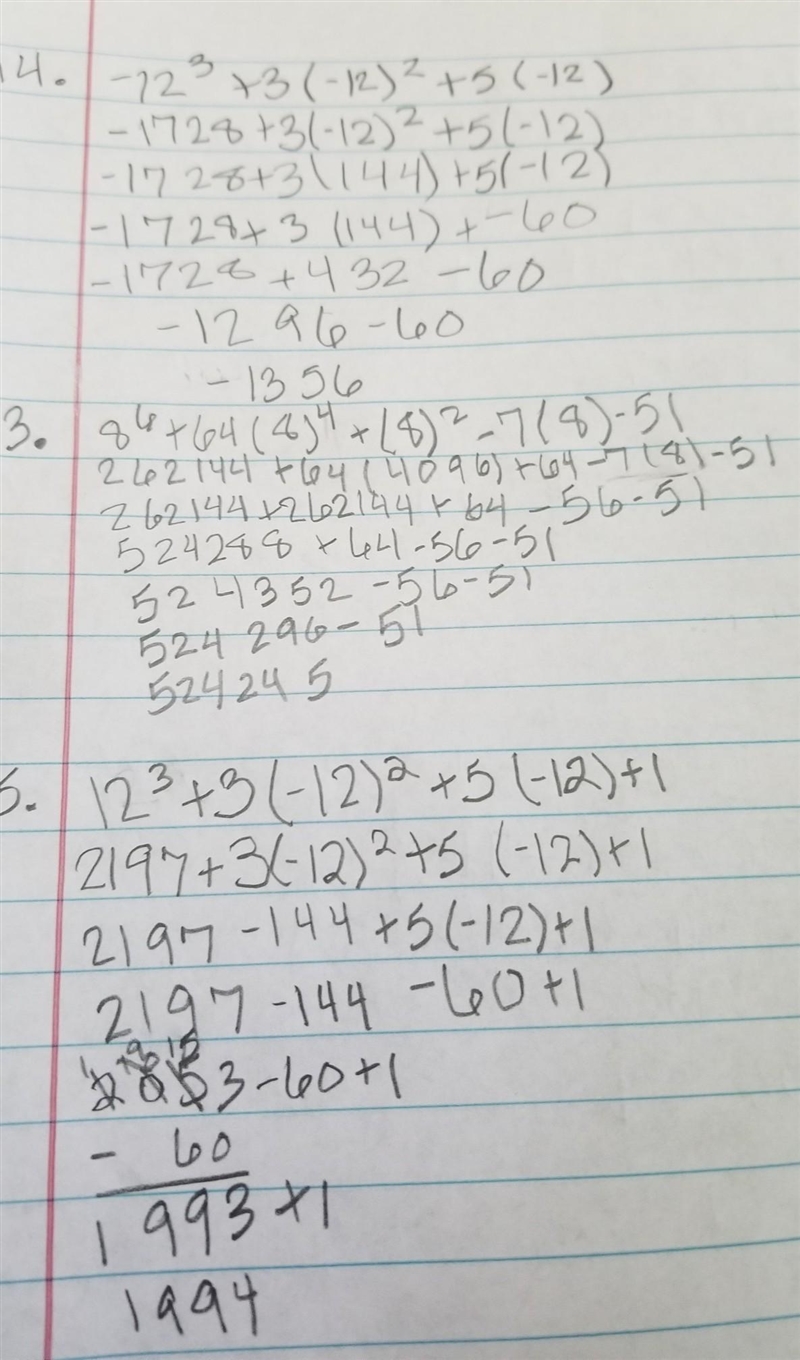 14. -12³ +3(-12)² +5(-12)
-1728+3(-12)² +5(-12)
-1728+3(144)+5(-12)
-1728+3(144)+-60
-1728+432-60
-1296-60
-1356
3. 8⁶+64(8)⁴+(8)²-7(8)-51
262144+64(4096)+64-7(8)-51
262144+262144+64-56-51
524288+64-56-51
524352-56-51
524296-51
524245
5. 12³+3(-12)²+5(-12)+1
2197+3(-12)²+5(-12)+1
2197-144+5(-12)+1
2197-144-60+1
2053-60+1
- 60
1993+1
1994